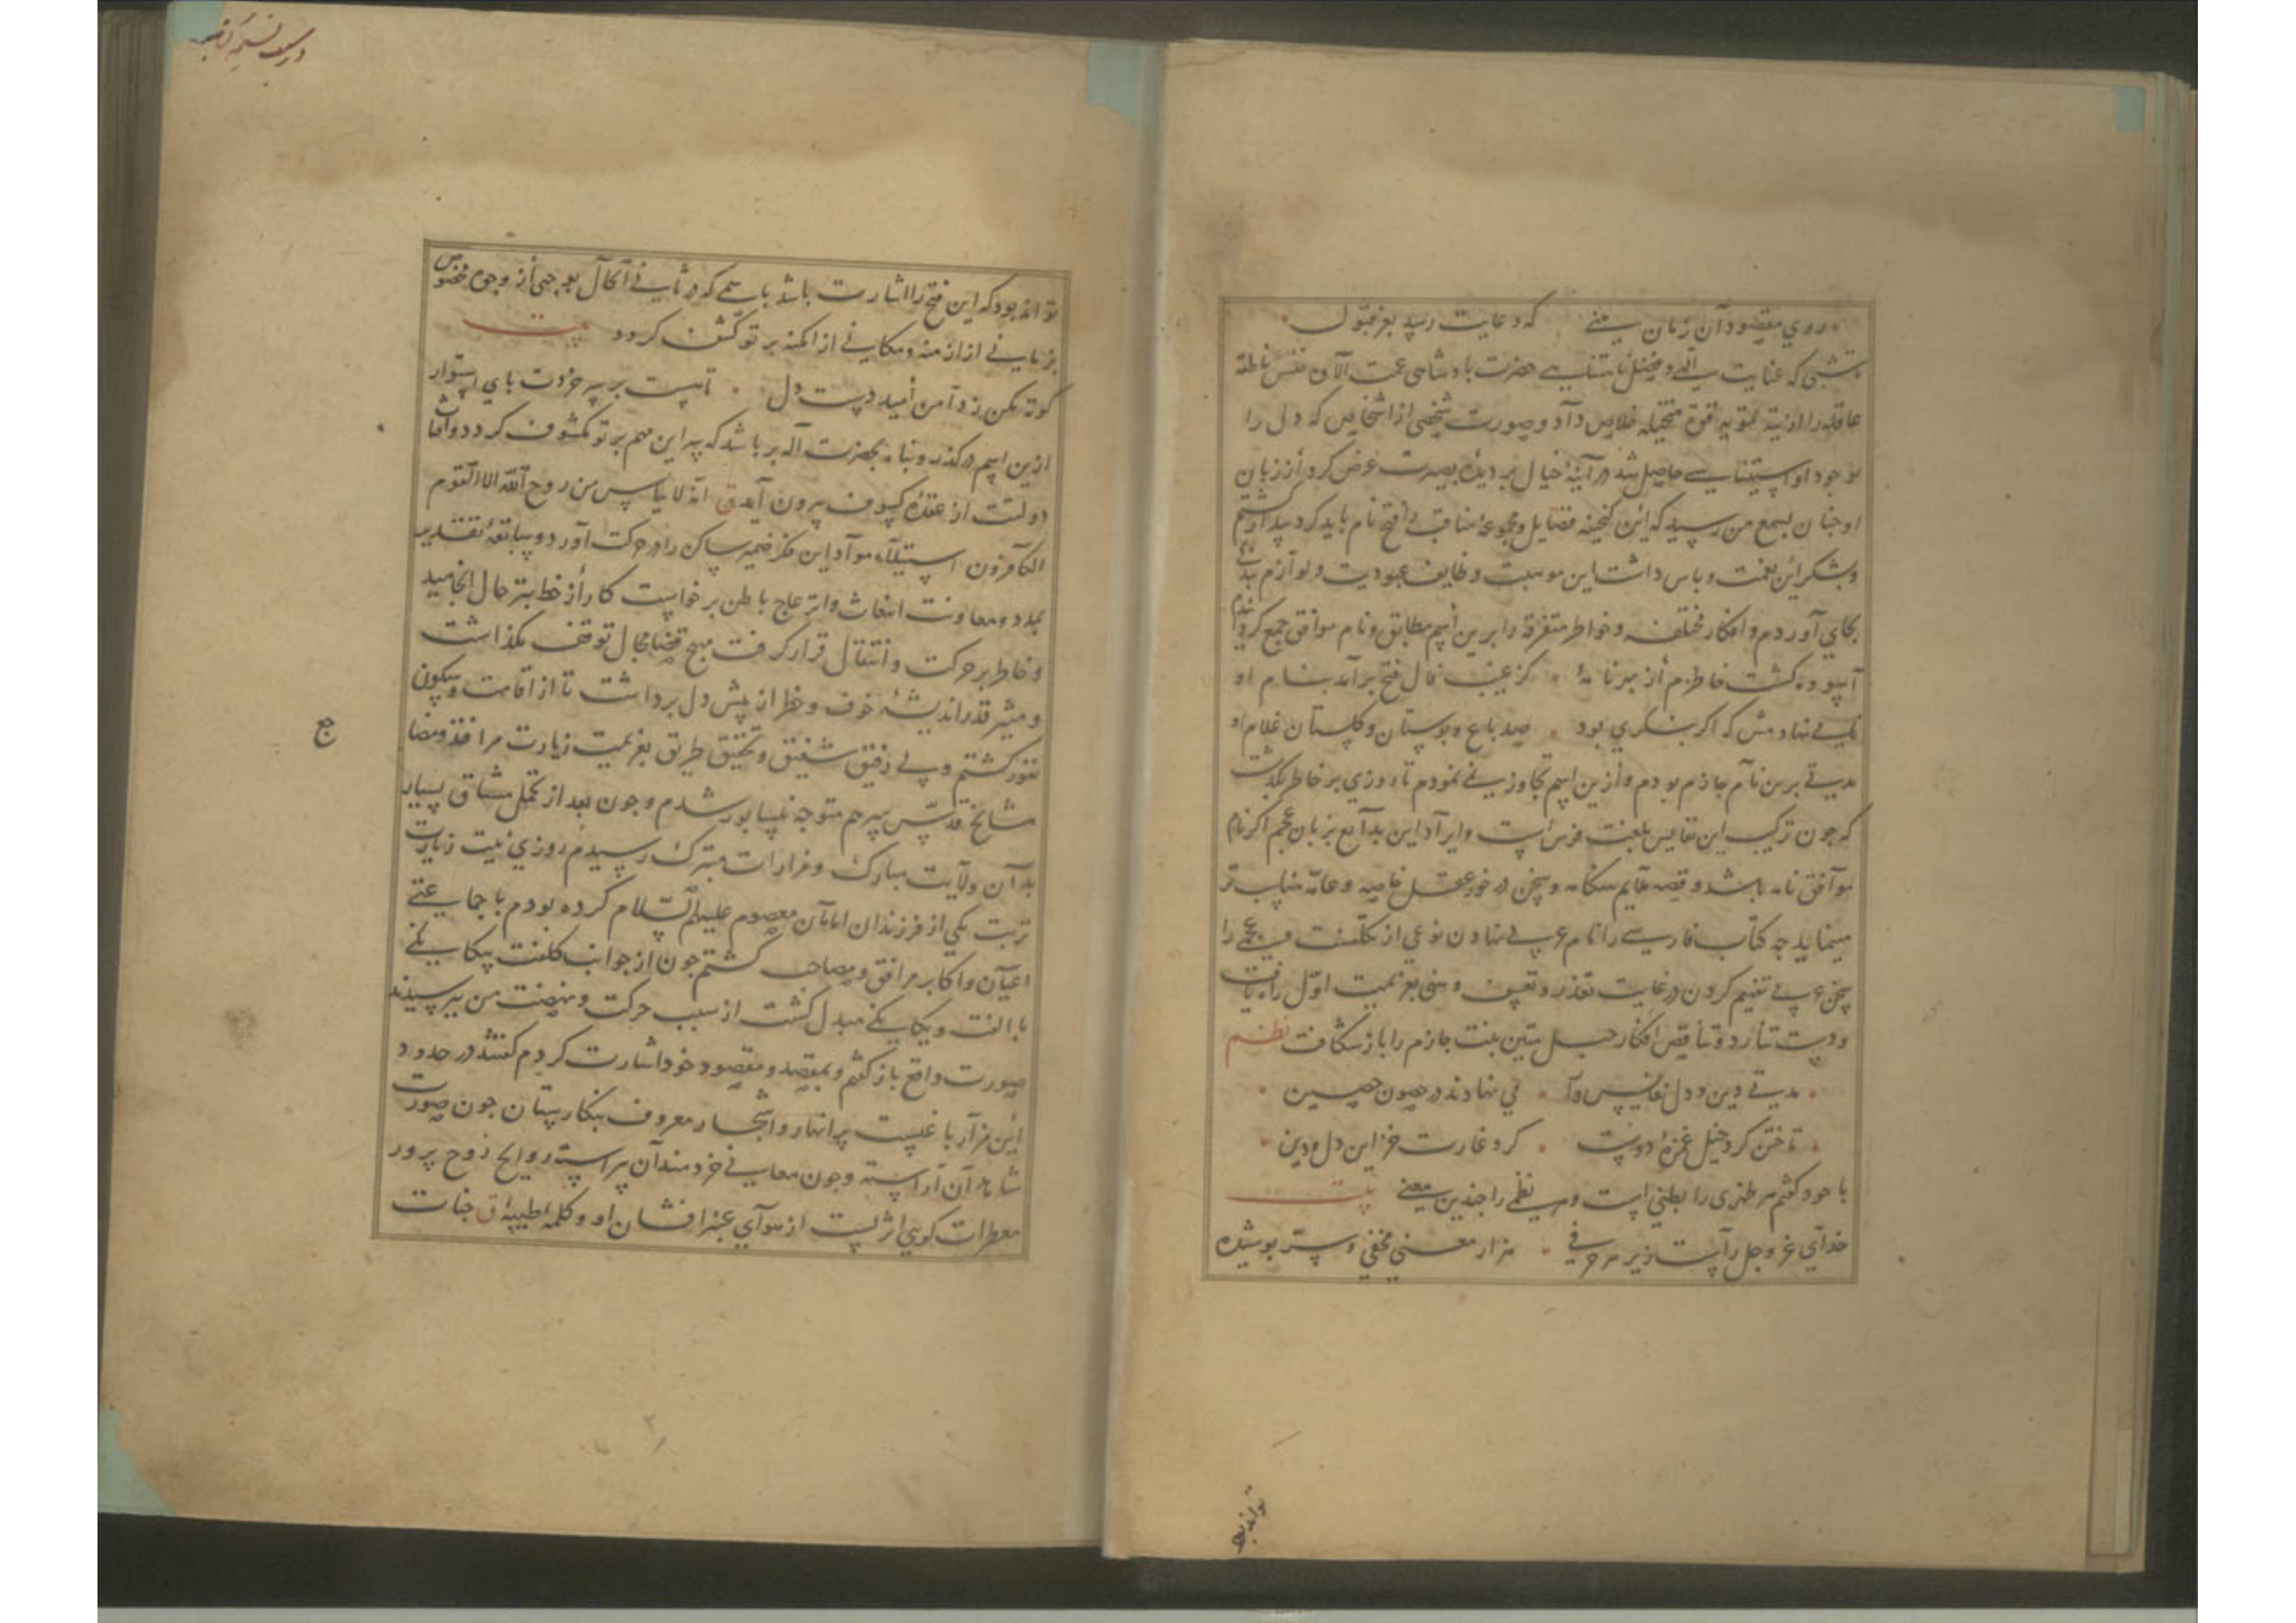 روي مقصود آن زمان بيني که دعايت رسد بعز قبول
تا شبي که عنايت الهي و فضل نامتناهي حضرت پادشاهي عمت الآؤه نفس ناطقه
عاقله را از تيه تمويه قوة متخيله خلاص داد و صورت شخصي از اشخاص که دل را
بوجود او استيناسي حاصل شد در آينۀ خيال بر ديدۀ بصيرت عرض کرد و از زبان
او چنان بسمع من رسيد که اين گنجينه فضايل و مجموعه مناقب را فتح نام بايد کرد بيدار گشتم
و بشکر اين نعمت و پاس داشت اين موهبت وظايف عبوديت و لوازم بندگي
بجاي آوردم و افکار مختلفه و خواطر متفرقه را برين اسم مطابق و نام موافق جمع گردانيدم
آسوده گشت خاطرم از بهر نامۀ کز غيب فال فتح برآمد بنام او
نامي نهادمش که اگر بنگري بود صد باغ و بوستان و گلستان غلام او
مدتي برين نام جازم بودم و ازين اسم تجاوز نمي نمودم تا روزي بر خاطر بگذشت
که چون ترکيب اين نفايس بلغت فرس است و ايراد اين بدايع بزبان عجم اگر نام
موافق نامه باشد و قصه ملايم هنگامه و سخن در خور عقل خاصه و عامه مناسب تر
مينمايد چه کتاب فارسي را نام عربي نهادن نوعي از تکلفست و عجمي را
سخن عربي تفهيم کردن در غايت تعذر و تعسف و هني بعزيمت اول راه يافت
و دست تنازد و تناقض افکار حبل متين نيت جازم را باز شکافت نظم
مدتي دين و دل نفايس را مي نهادند در حصون حصين
تاختن کرد خيل غمزۀ دوست کرد غارت خزاين دل و دين
با خود گفتم هر ظهري را بطني است و هر نظمي را چندين معني بيت
خداي عز و جل راست زير هر حرفي هزار معني مخفي و سر پوشيده
تواند بود
تواند بود که اين فتح را اشارت باشد باسمي که در ثاني الحال بوجهي از وجوه مخصوص
بزماني از ازمنه و مکاني از امکنه بر تو کشف گردد بيت
کوته مکن ز دامن اميد دست دل تا هست بر سر خردت پاي استوار
ازين اسم در گذر و پناه بحضرت اله بر باشد که سر اين مهم بر تو مکشوف گردد و آفتاب
دولتت از عقدۀ کسوف بيرون آيد ق انه لا يياس من روح الله الا القوم
الکافرون استيلاء مواد اين فکر ضمير ساکن را در حرکت آورد و سابقۀ تقدير
بمدد و معاونت انبعاث و انزعاج باطن برخواست کار از خط بتر حال انجاميد
و خاطر بر حرکت و انتقال قرار گرفت مهيج قضا مجال توقف نگذاشت
و مشير قدر انديشۀ خوف و خطر از پيش دل برداشت تا از اقامت و سکون
نفور گشتم و بي رفيق شفيق و تحقيق طريق بعزيمت زيارت مراقد و مضاجع
مشايخ قدس سرهم متوجه نيسابور شدم و چون بعد از تحمل مشاق بسيار
بدان ولايت مبارک و مزارات متبرک رسيدم روزي نيت زيارت
تربت يکي از فرزندان امامان معصوم عليهم السلام کرده بودم با جماعتي
اعيان و اکابر مرافق و مصاحب گشتم چون از جوانب کلفت بيگانگي
با الفت و يگانگي مبدل گشت از سبب حرکت و نهضت من پرسيدند
صورت واقع باز گفتم و بمقصد و مقصود خود اشارت کردم گفتند در حدود
اين مزار باغيست پر انهار و اشجار معروف بنگارستان چون صورت
شاهدان آراسته و چون معاني خردمندان پيراسته روايح روح پرور
معطرات گويي اثريست از هواي عنبر افشان او و کلمه طيبۀ ق جنات
ج